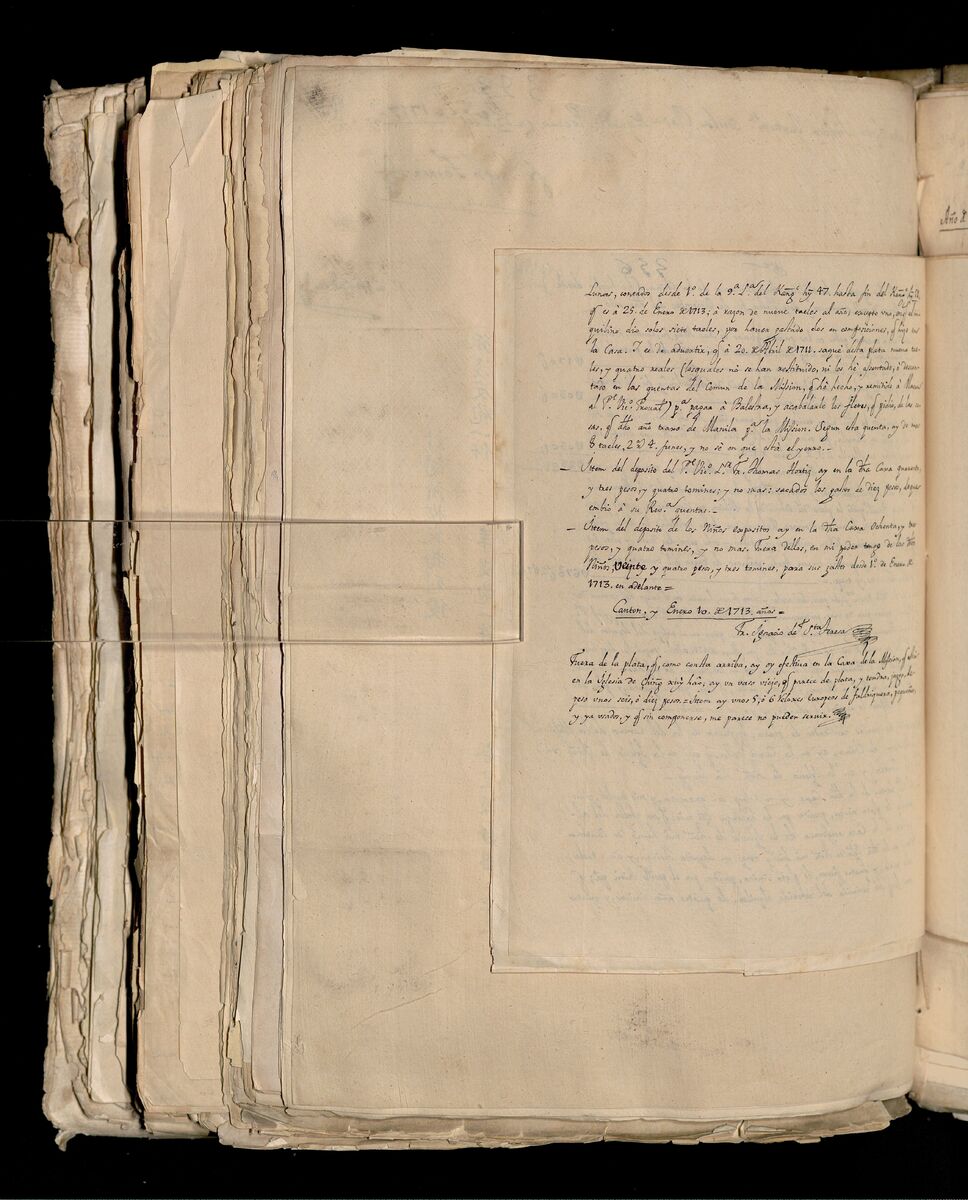 Lunas, contados desde 1º. de la 9ª. Lª. del Kang hy 47. hasta fin del Kang hy
q̃ es à 25. de Enero de 1713; à razon de nueve taeles al año; excepto vno, en q̃ el in
quilino dio solos siete taeles, por haver gastado dos en composiciones, q̃ hizo en
la Casa. Y es de advertir, q̃ à 20. de Abril de 1711. saque desta plata nueve tae
les, y quatro reales (los quales no se han restituido, ni los hè assentado, ò descon
tado en las quentas del Comun de la Mission, q̃ hè hecho, y remitido à Manila
al Pe. N. Proval.) pª. pagar à Balesina, y acabalarle los fletes, q̃ pidio, de las co
sas, q̃ dho año traxo de Manila pª. la Mission. Segun esta quenta, ay de mas
8 taeles, 2 4. funes, y no sè en que està el yerro.-
- Item del deposito del Pe. N. Lr. Fr. Thomas Hortiz ay en la dha Caxa quarenta,
y tres pesos, y quatro tomines; y no mas; sacados los gastos de Diez pesos, de que
embiò à su Reva. quentas.-
- Item del deposito de los Niños expositos ay en la dha Caxa Ochenta, y tres
pesos, y quatro tomines, y no mas. Fuera dellos, en mi poder tengo de los dhos
Niños, veinte y quatro pesos, y tres tomines, para sus gastos desde 1º. de Enero de
1713. en adelante=
Canton, y Enero 10. de 1713. años=
Fr. Ignacio de Sta. Teresa
Fuera de la plata, q̃, como consta arriba, ay oy efectiva en la Caxa de la Mission, q̃
en la Iglesia de ay vn vaso viejo, q̃ parece de plata, y tendra, juzgo, de
peso vnos seis, ò diez pesos.= Item ay vnos 5, ò 6 Reloxes Europeos de faldriquera, pequeños,
y ya vsados, y q̃ sin componerse, me parese no pueden servir.
336
Año de